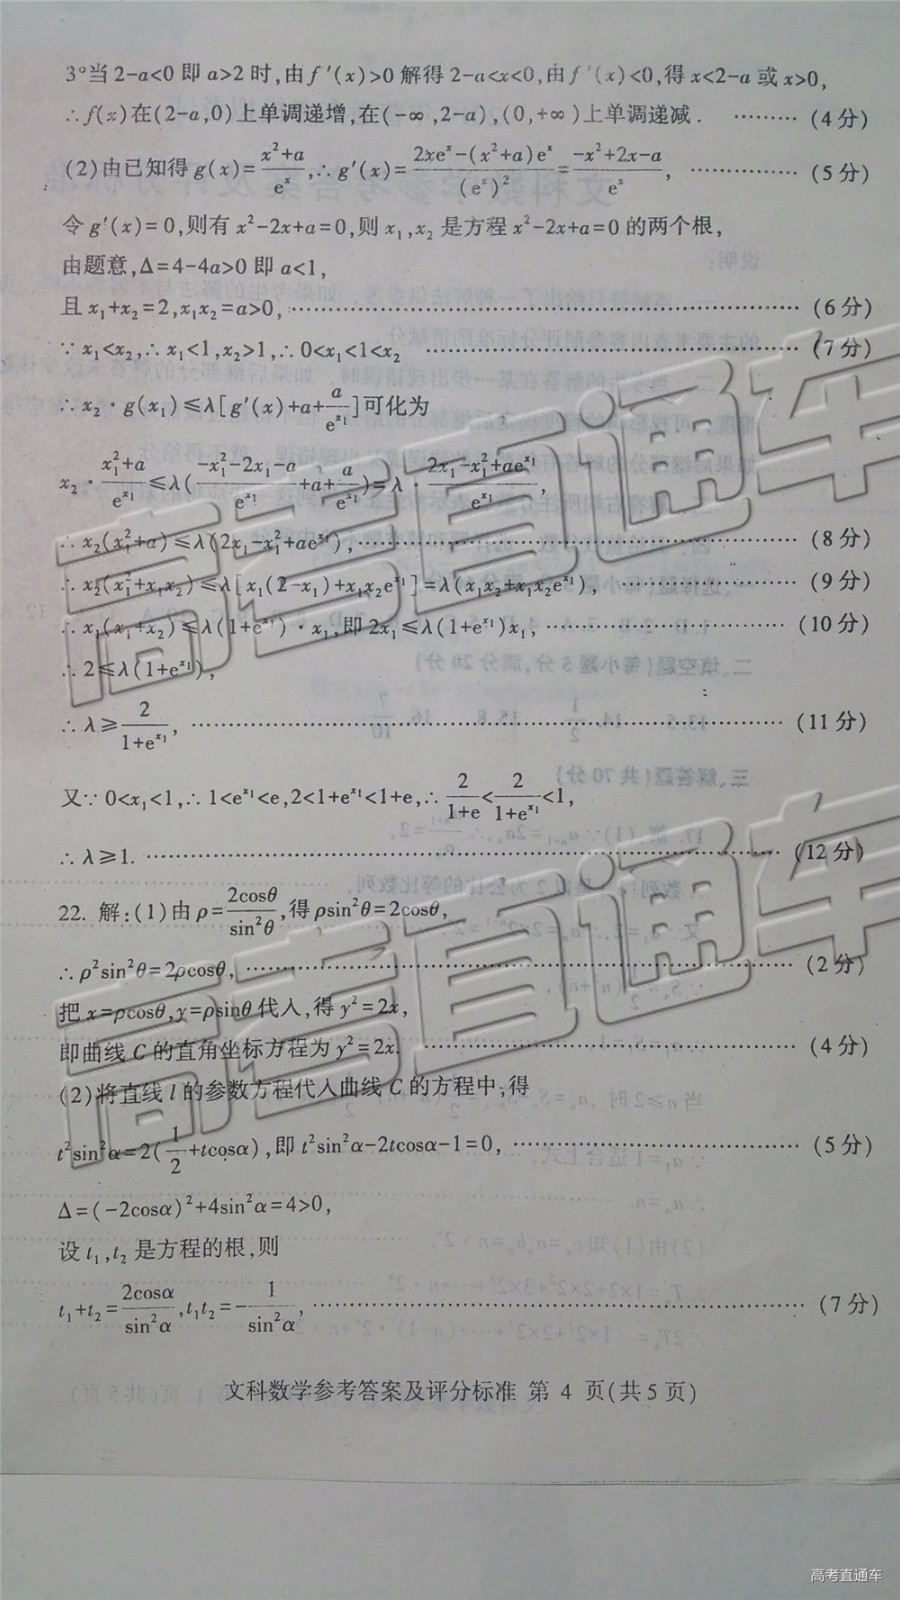 3°当2-a<0即a>2时,由f′(x)>0解得2-a<x<0,由f′(x)<0,得x<2-a或x>0,
∴f(x)在(2-a,0)上单调递增,在(-∞,2-a),(0,+∞)上单调递减. ……… (4分)
(2)由已知得g(x)=\frac{x²+a}{eˣ},∴g′(x)=\frac{2xeˣ-(x²+a)eˣ}{(eˣ)²}=\frac{-x²+2x-a}{eˣ}, …………… (5分)
令g′(x)=0,则有x²-2x+a=0,则x₁,x₂是方程x²-2x+a=0的两个根,
由题意,Δ=4-4a>0即a<1,
且x₁+x₂=2,x₁x₂=a>0, …………… (6分)
∵x₁<x₂,∴x₁<1,x₂>1,∴0<x₁<1<x₂ …………… (7分)
∴x₂·g(x₁)≤λ[g′(x)+a+\frac{a}{e^{x₁}}]可化为
x₂·\frac{x₁²+a}{e^{x₁}}≤λ(\frac{-x₁²-2x₁-a}{e^{x₁}}+a+\frac{a}{e^{x₁}})=λ·\frac{2x₁-x₁²+ae^{x₁}}{e^{x₁}},
∴x₂(x₁²+a)≤λ(2x₁-x₁²+ae^{x₁}), …………… (8分)
∴x₂(x₁²+x₁x₂)≤λ[x₁(2-x₁)+x₁x₂e^{x₁}]=λ(x₁x₂+x₁x₂e^{x₁}), …………… (9分)
∴x₁(x₁+x₂)≤λ(1+e^{x₁})·x₁,即2x₁≤λ(1+e^{x₁})x₁, …………… (10分)
∴2≤λ(1+e^{x₁}),
∴λ≥\frac{2}{1+e^{x₁}}, …………… (11分)
又∵0<x₁<1,∴1<e^{x₁}<e,2<1+e^{x₁}<1+e,∴\frac{2}{1+e}<\frac{2}{1+e^{x₁}}<1,
∴λ≥1. …………… (12分)
22. 解:(1)由ρ=\frac{2cosθ}{sin²θ},得ρsin²θ=2cosθ,
∴ρ²sin²θ=2ρcosθ, …………… (2分)
把x=ρcosθ,y=ρsinθ代入,得y²=2x,
即曲线C的直角坐标方程为y²=2x. …………… (4分)
(2)将直线l的参数方程代入曲线C的方程中,得
t²sin²α=2(\frac{1}{2}+tcosα),即t²sin²α-2tcosα-1=0, …………… (5分)
Δ=(-2cosα)²+4sin²α=4>0,
设t₁,t₂是方程的根,则
t₁+t₂=\frac{2cosα}{sin²α},t₁t₂=-\frac{1}{sin²α}, …………… (7分)
文科数学参考答案及评分标准 第 4 页(共5页)
高考直通车
高考直通车
高考直通车